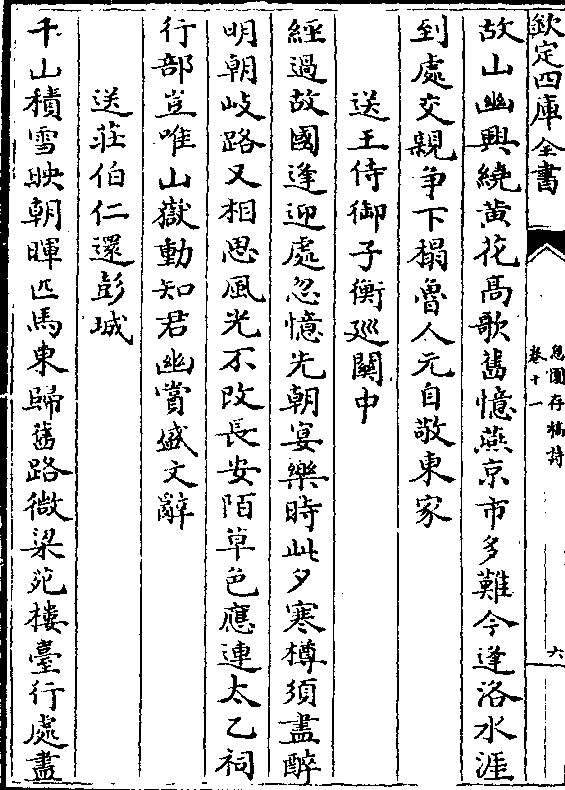 欽定四庫全書
息園存稿詩
卷十一
六
故山幽興繞黃花高歌舊憶燕京市多難今逢洛水涯
到處交親争下榻魯人元自敬東家
送王侍御子衡廵關中
經過故國逢迎處忽憶先朝宴樂時此夕寒樽須盡醉
明朝岐路又相思風光不改長安陌草色應連太乙祠
行部豈唯山嶽動知君幽賞盛文辭
送莊伯仁還彭城
千山積雪映朝暉匹馬東歸舊路微梁苑樓臺行處盡